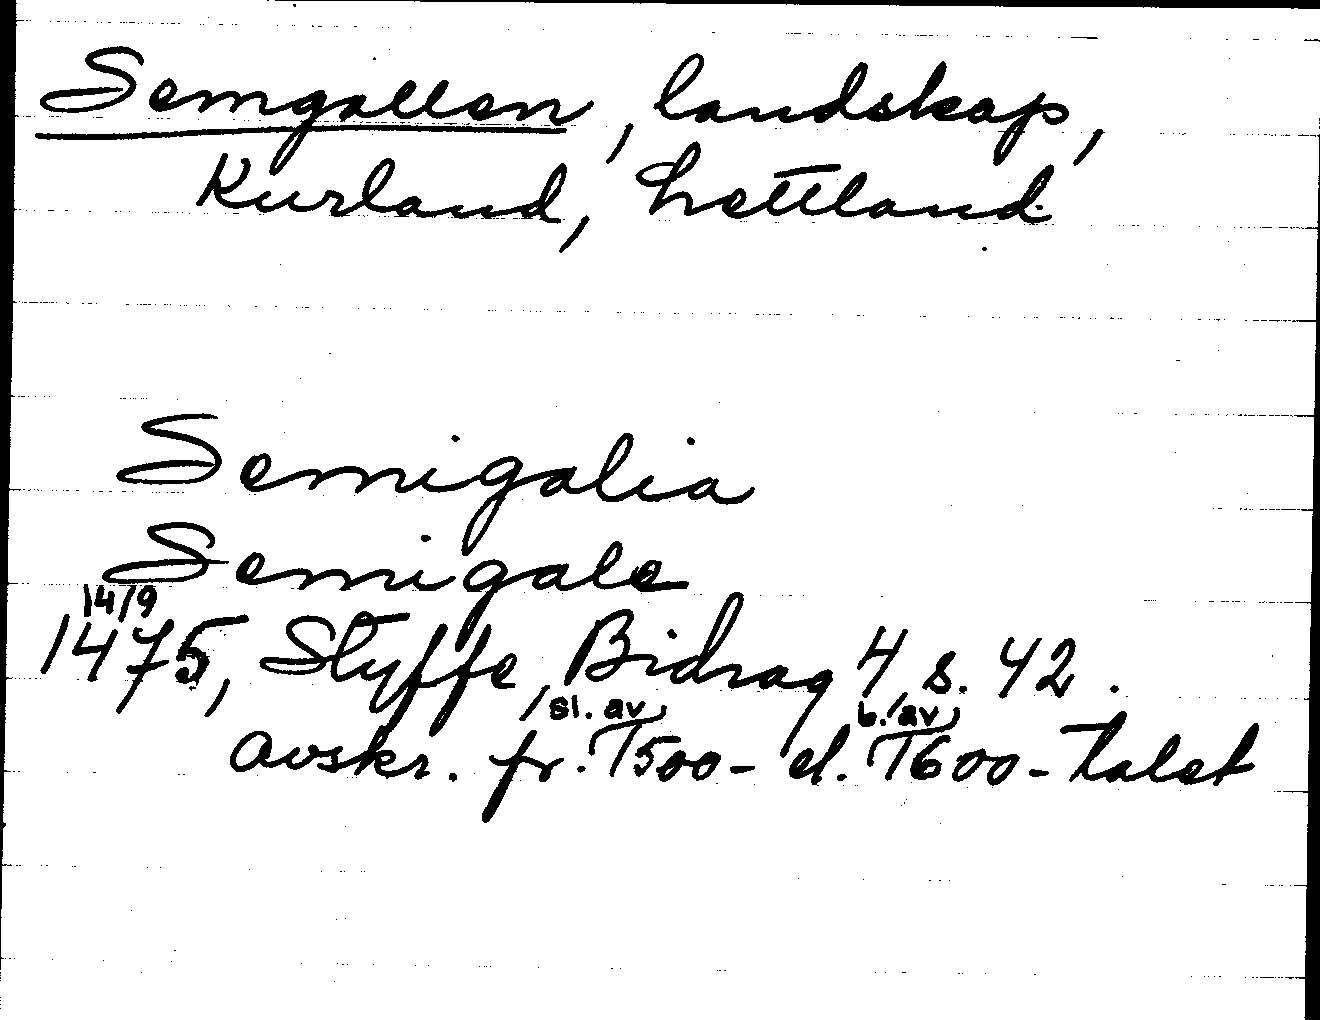 Semgallen, landskap,
Kurland, Lettland.
Semigalia
Semigale
14/9
1475, Styffe, Bidrag 4, s. 42.
sl. av b. av
avskr. fr. 1500- el. 1600-talet